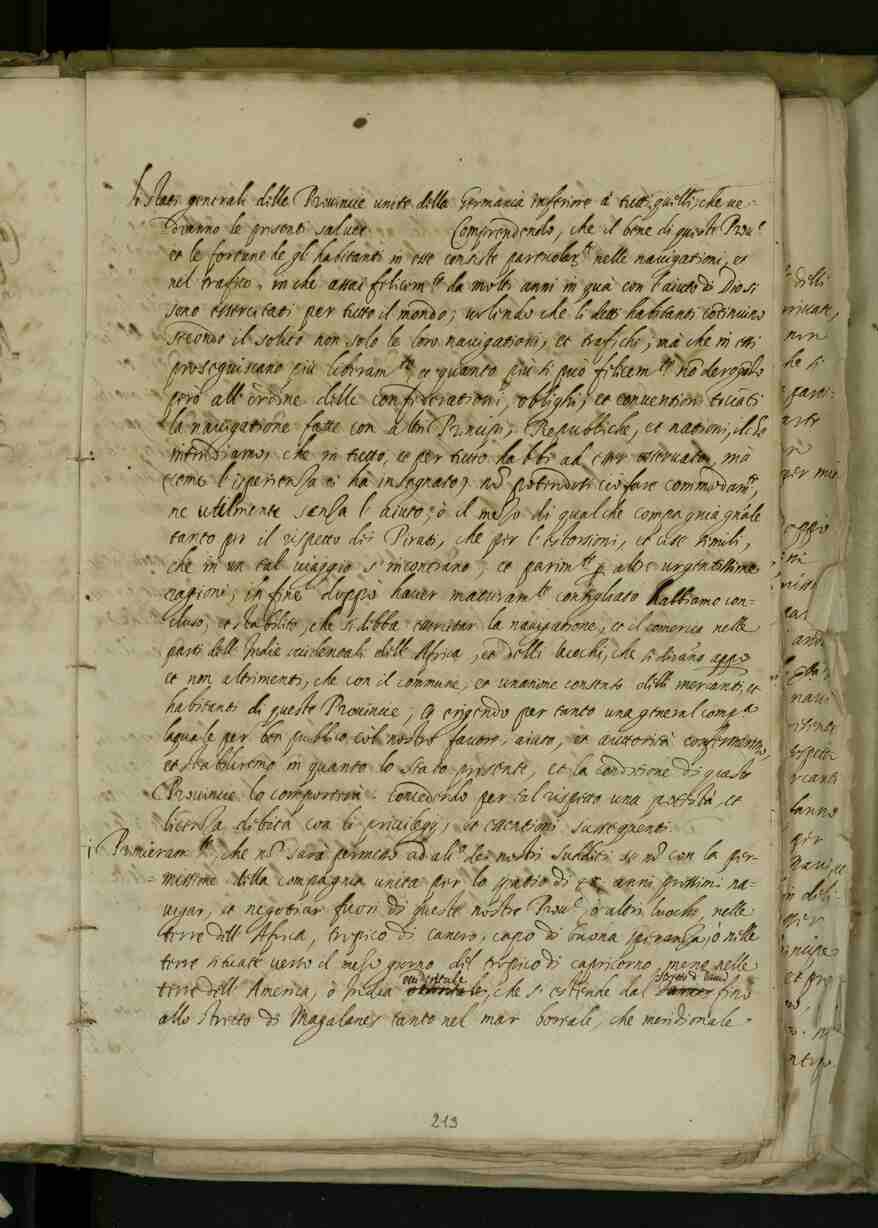 Li Stati generali delle Provincie unite della Germania inferiore à tutti quelli, che ve-
deranno le presenti salute. Comprendendo, che il bene di queste Prou.e
et le fortune de gl'habitanti in esse consiste particolarm.te nelle navigationi, et
nel trafico, in che assai felicem.te da molti anni in quà con l'aiuto di Dio si
sono essercitati per tutto il mondo; volendo che li detti habitanti continuino
secondo il solito non solo le loro navigationi, et trafichi, mà che in essi
proseguiscano più liberam.te, et quanto più si può felicem.te nõ derogãdo
però all'ordine delle confederationi, oblighi, et conventioni toccãti
la navigatione fatte con altri Principi, Republiche, et nationi, il che
intendiamo, che in tutto, et per tutto habbi ad esser osservato, mà
come l'esperienza ci ha insegnato, nõ potendosi ciò fare commodam.te,
ne utilmente senza l'aiuto, ò il mezo di qualche compagnia gñale
tanto per il rispetto dei Pirati, che per l'estorsioni, et cose simili,
che in un tal viaggio s'incontrano, et parim.te p altre urgentissime
cagioni; in fine doppò haver maturam.te consigliato habbiamo con-
cluso, et stabilito, che si debba essercitar la navigatione, et il comercio nelle
parti dell'Indie occidentali dell'Africa, et delli luochi, che si dirãno appo
et non altrimenti, che con il commune, et unanime consenso delli mercanti, et
habitanti di queste Provincie; erigendo per tanto una general comp.a
laquale per ben publico col nostro favore, aiuto, et auttorità confermeremo,
et stabiliremo in quanto lo stato presente, et la conditione di queste
Provincie lo comporterà. Concedendo per tal rispetto una potestà, et
licenza debita con li privilegij, et essentioni sussequenti.
i Primieram.te, che nõ sarà permesso ad alc.o dei nostri sudditi se nõ con la per-
missione della compagnia unita per lo spatio di anni prossimi na-
vigar, et negotiar fuori di queste nostre Prou.e, ò altri luochi, nelle
terre dell'Africa, tropico di cancro, capo di buona speranza, ò nelle
terre situate verso il mezo giorno del tropico di capricorno, meno nelle
terre dell'America, ò India occidentale, che si estende dal fino
allo stretto di Magalanes tanto nel mar boreale, che meridionale.
213